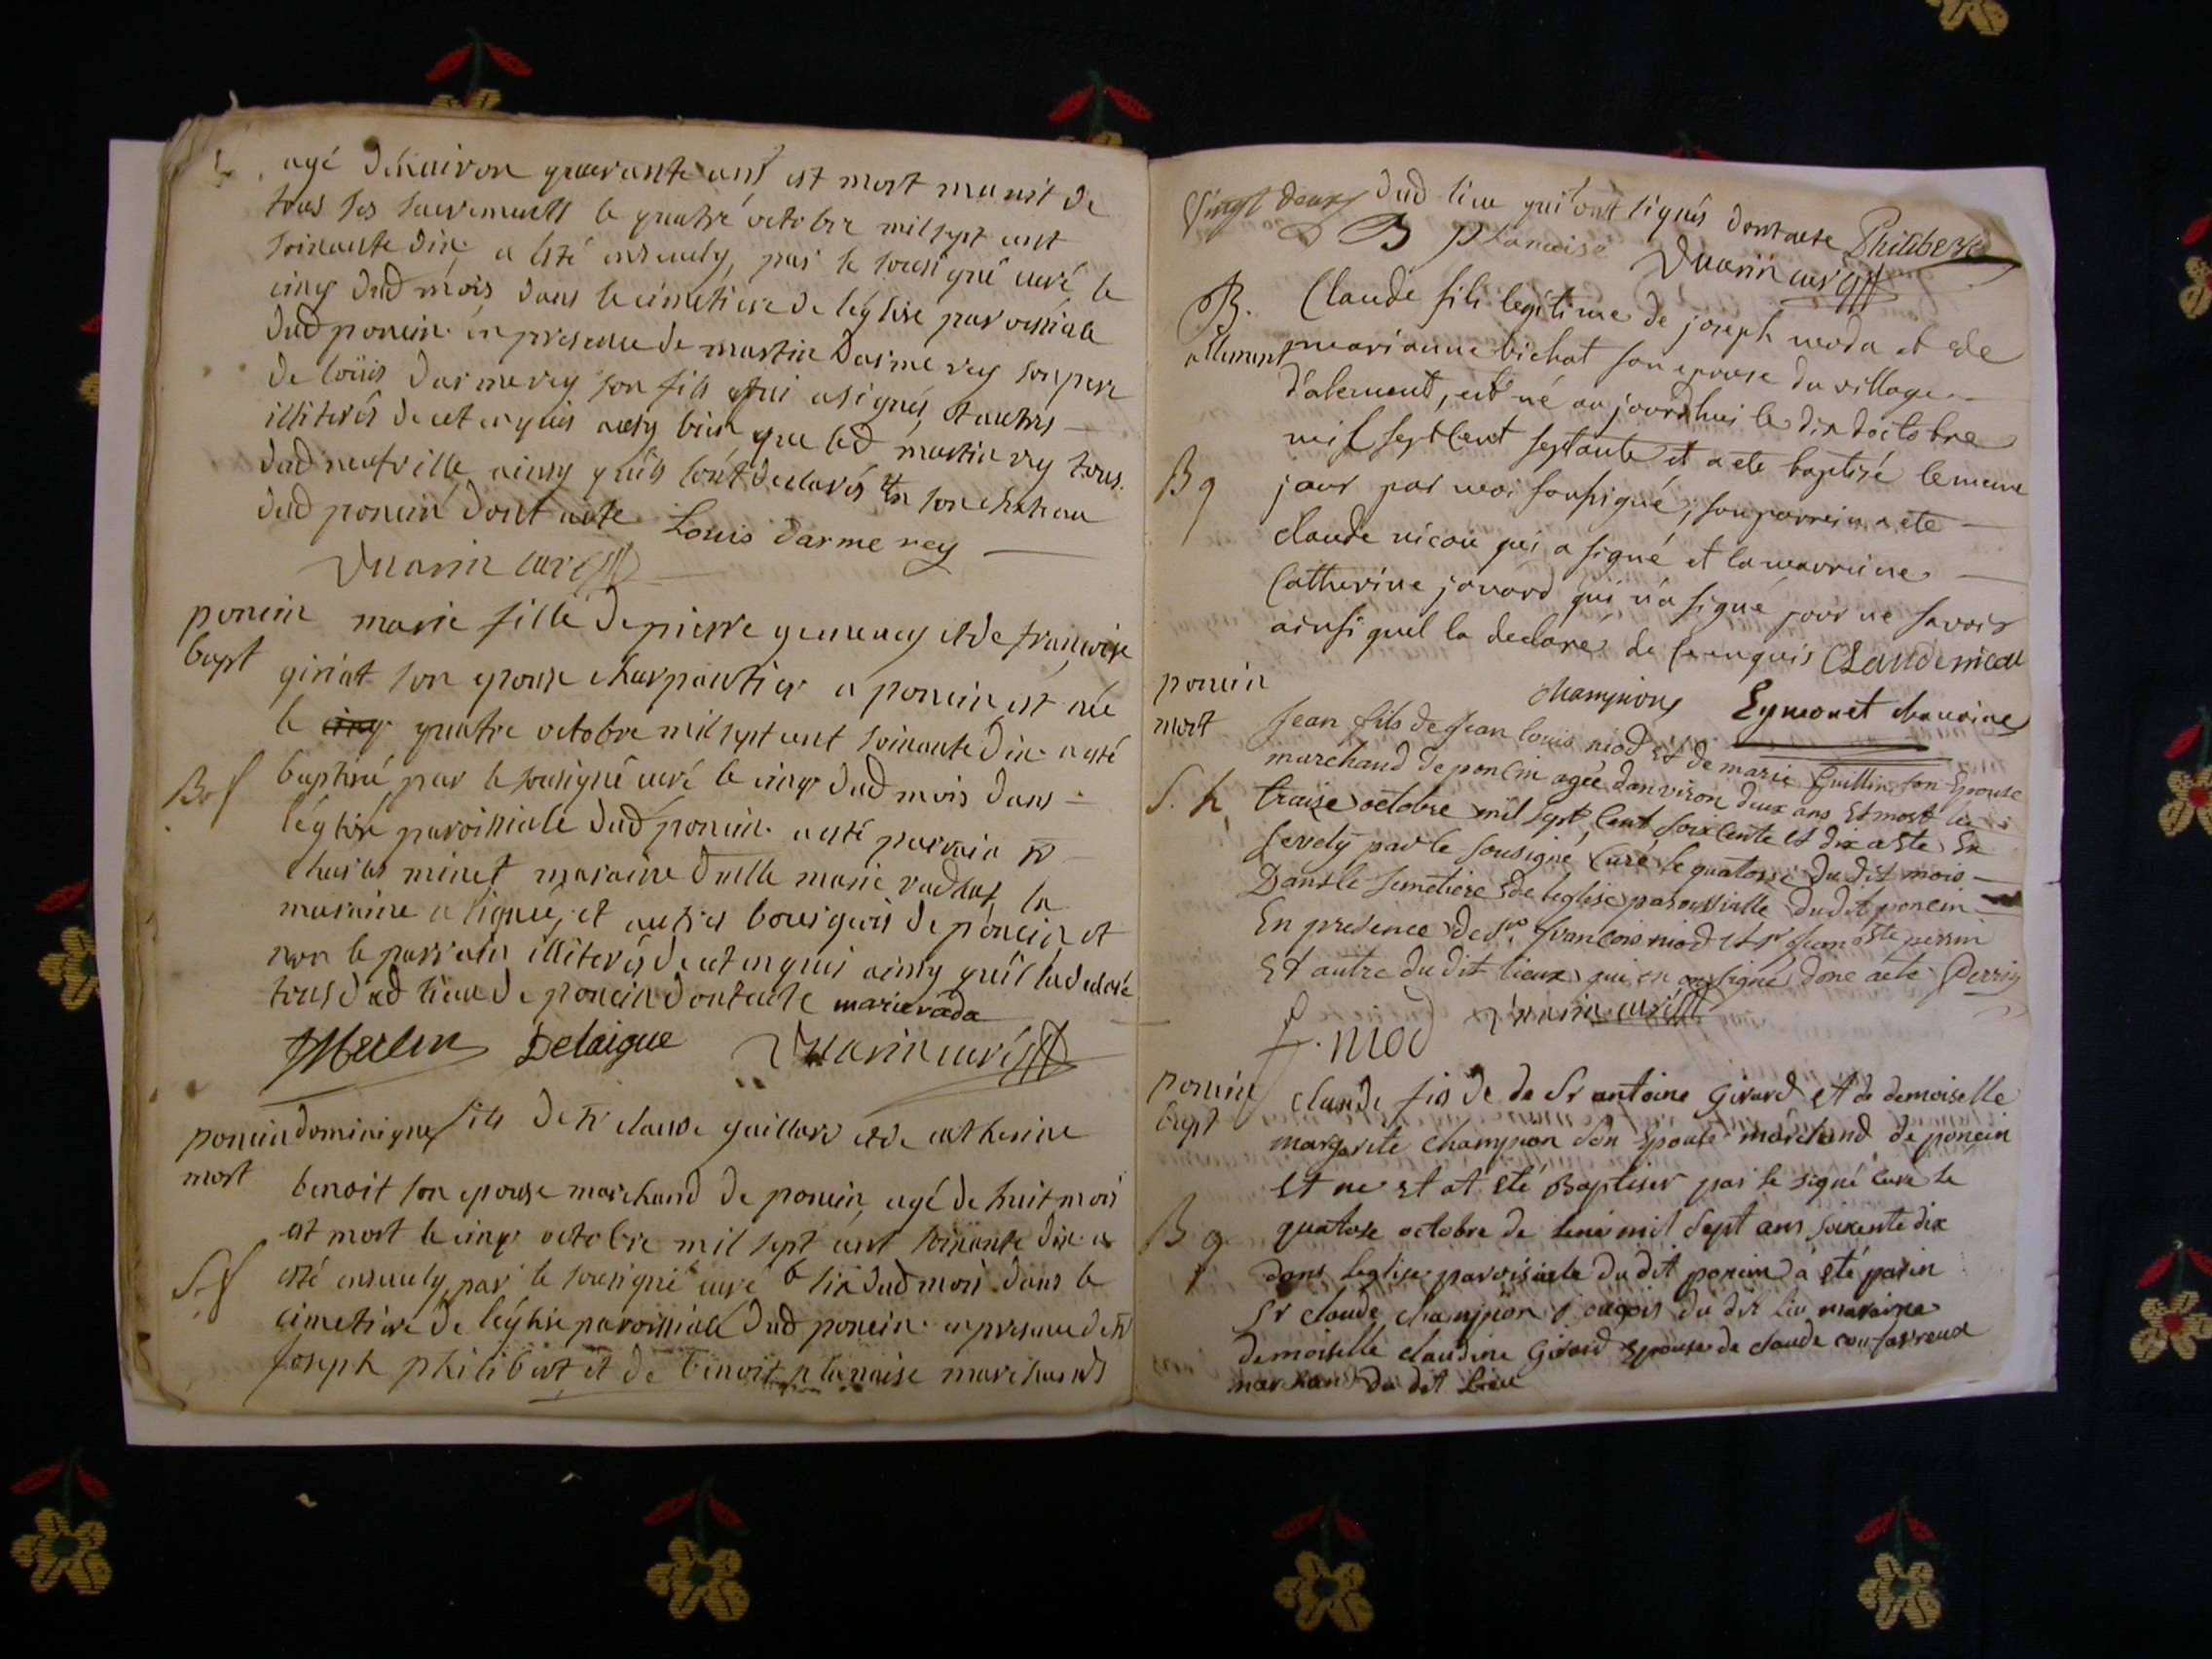 agé denviron quarante ans est mort munit de
tous ses sacrements le quatre octobre mil sept cent
soixante dix a esté enseuely par le sousigné curé le
cinq dud mois dans le cimetiere de léglise paroissiale
dud poncin en presence de martin darmerey son pere
de loüis darmerey son fils qui a signés et autres
illiterés de ce enquis aussy bien que led martin rey tous
dud neufville ainsy quils lont declarés en son chateau
dud poncin dont acte Louis darme rey
curé
poncin marie fille de pierre et de françoise
bapt giriat son epouse charpantier a poncin est née
le cinq quatre octobre mil sept cent soixante dix a esté
baptisé par le sousigné curé le cinq dud mois dans
B f
léglise paroissiale dud poncin a esté parrain sr
charles minet maraine dlle marie la
maraine a signée et autres bourgeois de poncin et
non le parrain illiterés de ce enquis ainsy quil la declaré
tous dud lieu de poncin dont acte marie rada
Merlin Delaigue curé
poncin dominique fils de sr claude guillard et de catherine
mort benoit son epouse marchand de poncin agé de huit mois
est mort le cinq octobre mil sept cent soixante dix a
S f esté enseuely par le sousigné curé le six dud mois dans le
cimetiere de léglise paroissiale dud poncin en presence de sr
joseph philibert et de benoit planaise marchands
Vingt deux dud lieu qui ont signés dont acte Philibert
B planaise curé
B. Claude fils legitime de joseph et de
allement marianne bichat son epouse du village
d'alement, est né aujourdhui le dix doctobre
mil sept cent septante et a ete baptisé le meme
B g jour par moi soussigné; son parrein a ete
claude nicou qui a signé et la marreine
Catherine javard qui n'a signé pour ne savoir
ainsi quel la declaré de ce enquis Claude nicou
champion Eymonet chanoine
poncin
mort Jean fils de Jean louis niod et de marie Guillin son Epouse
marchand de poncin agée danviron deux ans Et mort le
S. h traise octobre mil sept Cent soixcente et dix a Ete En
sevely par le sousigné Curé le quatorze du dit mois
Dans le semetiere de leglise paroissialle dudit poncin
En presence de sr francois niod et sr Jean Bte perrin
Et autre du dit lieux qui en on signé donc acte Perrin
f. niod curé
poncin claude fis de de Sr antoine Girard et de demoiselle
bapt margarite champion son epouse marchand de poncin
Et ne et at eté Baptiser par le signé cure le
B g quatose octobre de lené mil sept ans soixente dix
dans leglise paroisiaele du dit poncin a eté parin
Sr claude champion du dit lieu maraine
demoiselle claudine Girard epouse de claude
marchand du dit Lieu